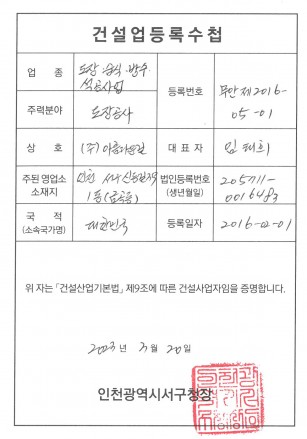 건설업등록수첩
업 종
도장·습식·방수·
석공사업
등록번호
제2016-
05-01
주력분야
도장공사
상 호
(주)아름다운길
대 표 자
임태희
주된 영업소
소재지
인천 서구
1층 (금곡동)
법인등록번호
(생년월일)
205711-
0016483
국 적
(소속국가명)
대한민국
등록일자
2016-02-01
위 자는 「건설산업기본법」 제9조에 따른 건설사업자임을 증명합니다.
2023년 3월 20일
인천광역시서구청장